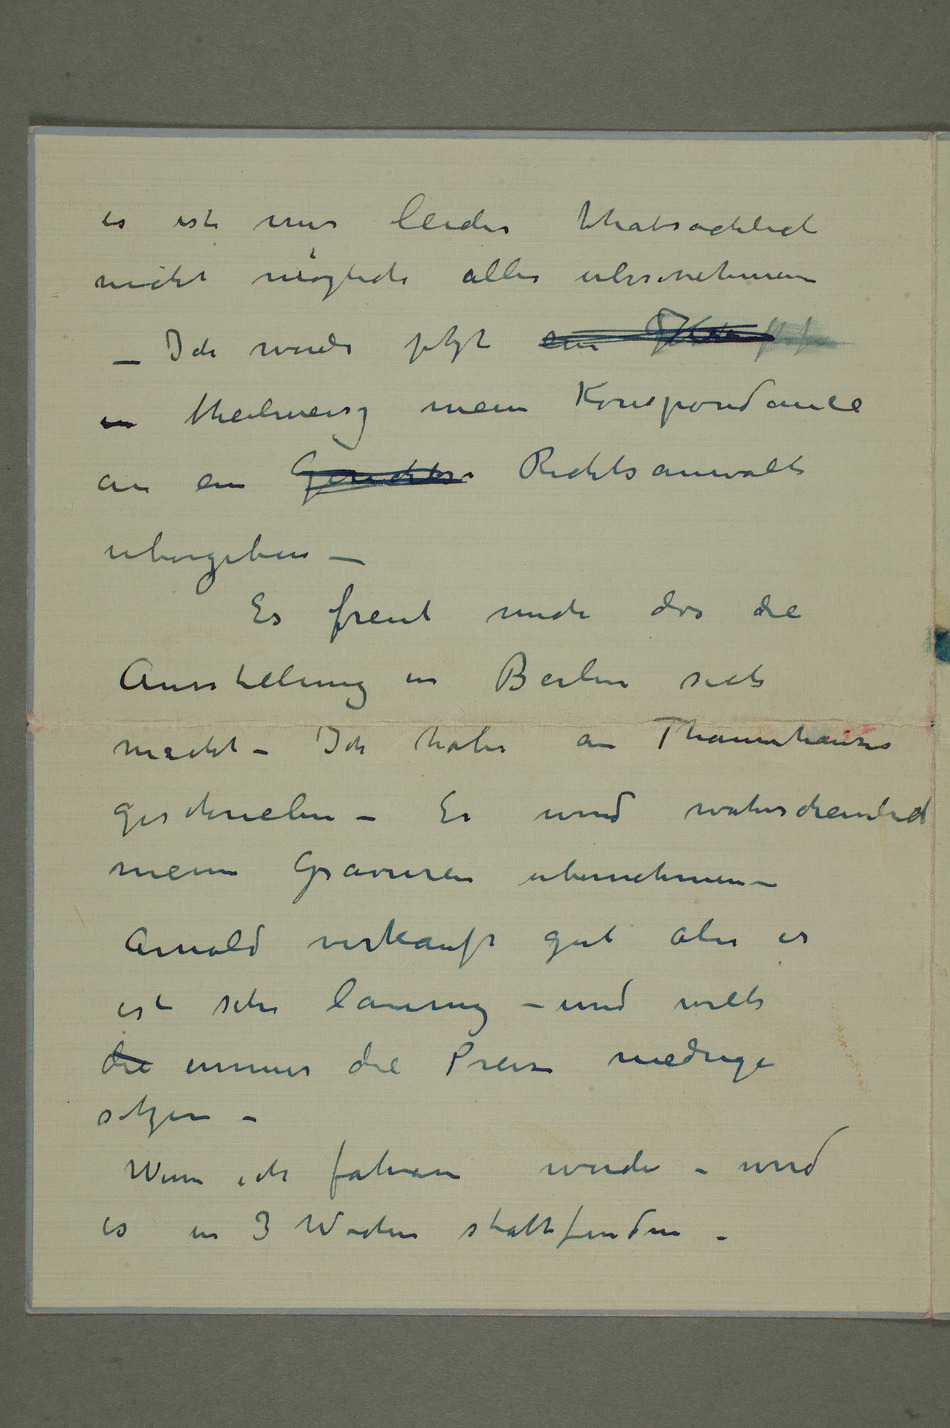 es ist mir leider thatsächlich
nicht möglich alles übernehmen
– Ich werde jetzt ein
in theilweise mein Korrespondance
an ein Gerichts Rechtsanwalt
übergeben –
Es freut mich das die
Ausstellung in Berlin sich
macht – Ich habe an Thannhauser
geschrieben – Er wird wahrscheinlich
meine Gravuren übernehmen –
Arnold verkauft gut aber er
ist sehr launig – und will
die immer die Preise niedrige
setzen –
Wenn ich fahren werde – wird
es in 3 Wochen stattfinden –